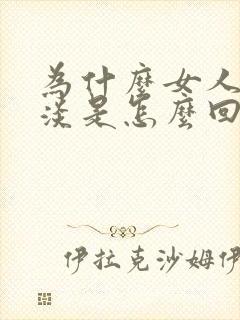 為什麼女人
淡是怎麼回
伊拉克沙姆伊